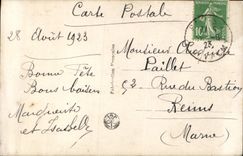 Carte Postale
28 Août 1923
Bonne Fête
Bons baisers
Marguerite
et Isabelle
Monsieur
Paillet
52 Rue du Bastion
Reims
(Marne)
10